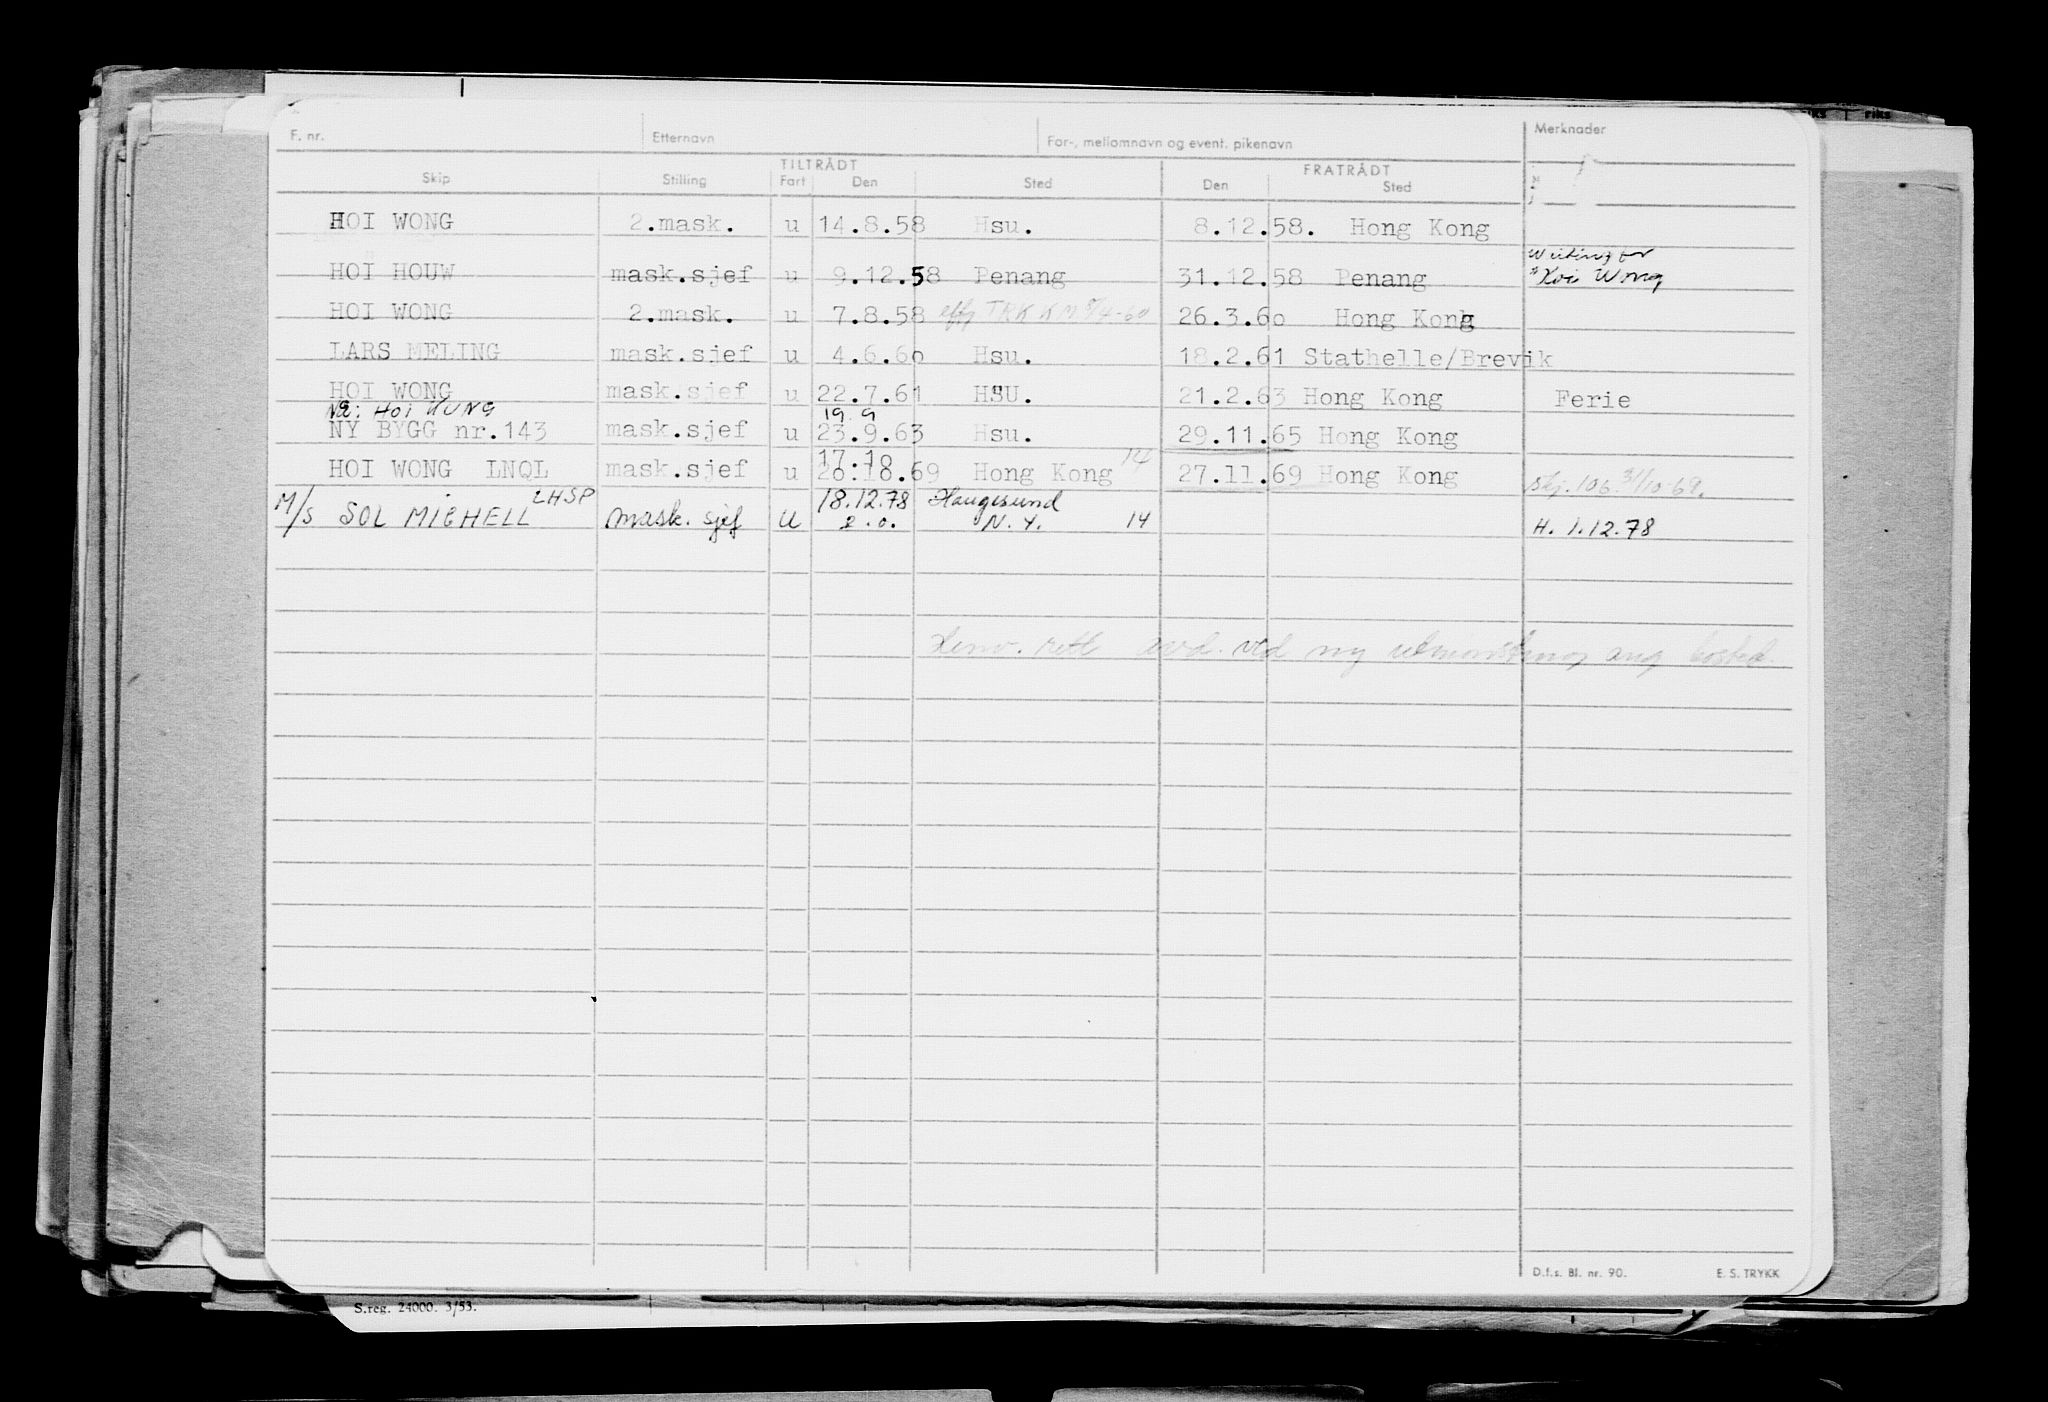 F. nr. Etternavn For-, mellomnavn og event. pikenavn Merknader
TILTRÅDT FRATRÅDT
Skip Stilling Fart Den Sted Den Sted
HOI WONG 2.mask. u 14.8.58 Hsu. 8.12.58. Hong Kong
HOI HOUW mask.sjef u 9.12.58 Penang 31.12.58 Penang Waiting for "Hoi Wong
HOI WONG 2.mask. u 7.8.58 26.3.60 Hong Kong
LARS MELING mask.sjef u 4.6.60 Hsu. 18.2.61 Stathelle/Brevik
HOI WONG mask.sjef u 22.7.61 HSU. 21.2.63 Hong Kong Ferie
Nå: HOI KUNG 19.9
NY BYGG nr.143 mask.sjef u 23.9.63 Hsu. 29.11.65 Hong Kong
17.10
HOI WONG LNQL mask.sjef u 20.10.69 Hong Kong 14 27.11.69 Hong Kong skj. 106 31/10-69.
M/S SOL MICHELL LHSP mask. sjef u 18.12.78 Haugesund
2.0. N.Y. 14 H. 1.12.78
Henv. rett avd. ved ny utmønstring ang bosted.
D.f.s. Bl. nr. 90. E. S. TRYKK
S.reg. 24000. 3/53.